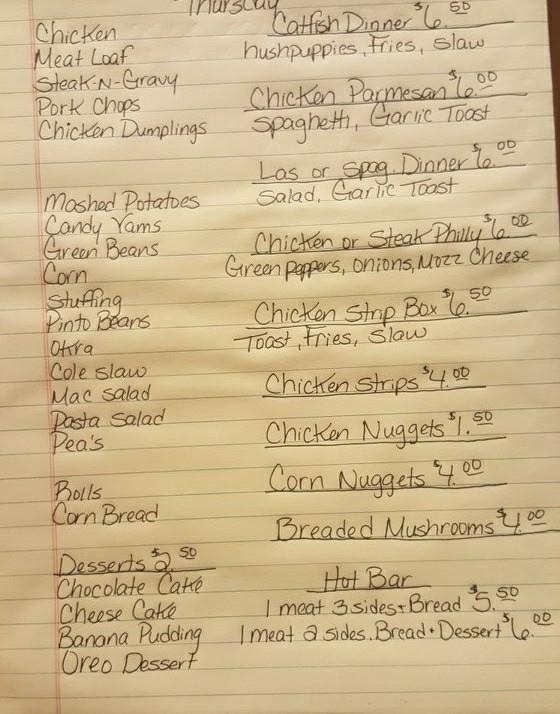 Thursday
Chicken
Meat Loaf
Steak-N-Gravy
Pork Chops
Chicken Dumplings
Mashed Potatoes
Candy Yams
Green Beans
Corn
Stuffing
Pinto Beans
Okra
Cole slaw
Mac salad
Pasta salad
Pea's
Rolls
Corn Bread
Desserts $2.50
Chocolate Cake
Cheese Cake
Banana Pudding
Oreo Dessert
Catfish Dinner $6.50
hushpuppies, fries, slaw
Chicken Parmesan $6.00
Spaghetti, Garlic Toast
Las or Spag. Dinner $6.00
Salad, Garlic Toast
Chicken or Steak Philly $6.00
Green peppers, onions, Mozz Cheese
Chicken Strip Box $6.50
Toast, fries, slaw
Chicken Strips $4.00
Chicken Nuggets $1.50
Corn Nuggets $4.00
Breaded Mushrooms $4.00
Hot Bar
1 meat 3 sides + Bread $5.50
1 meat 2 sides. Bread + Dessert $6.00